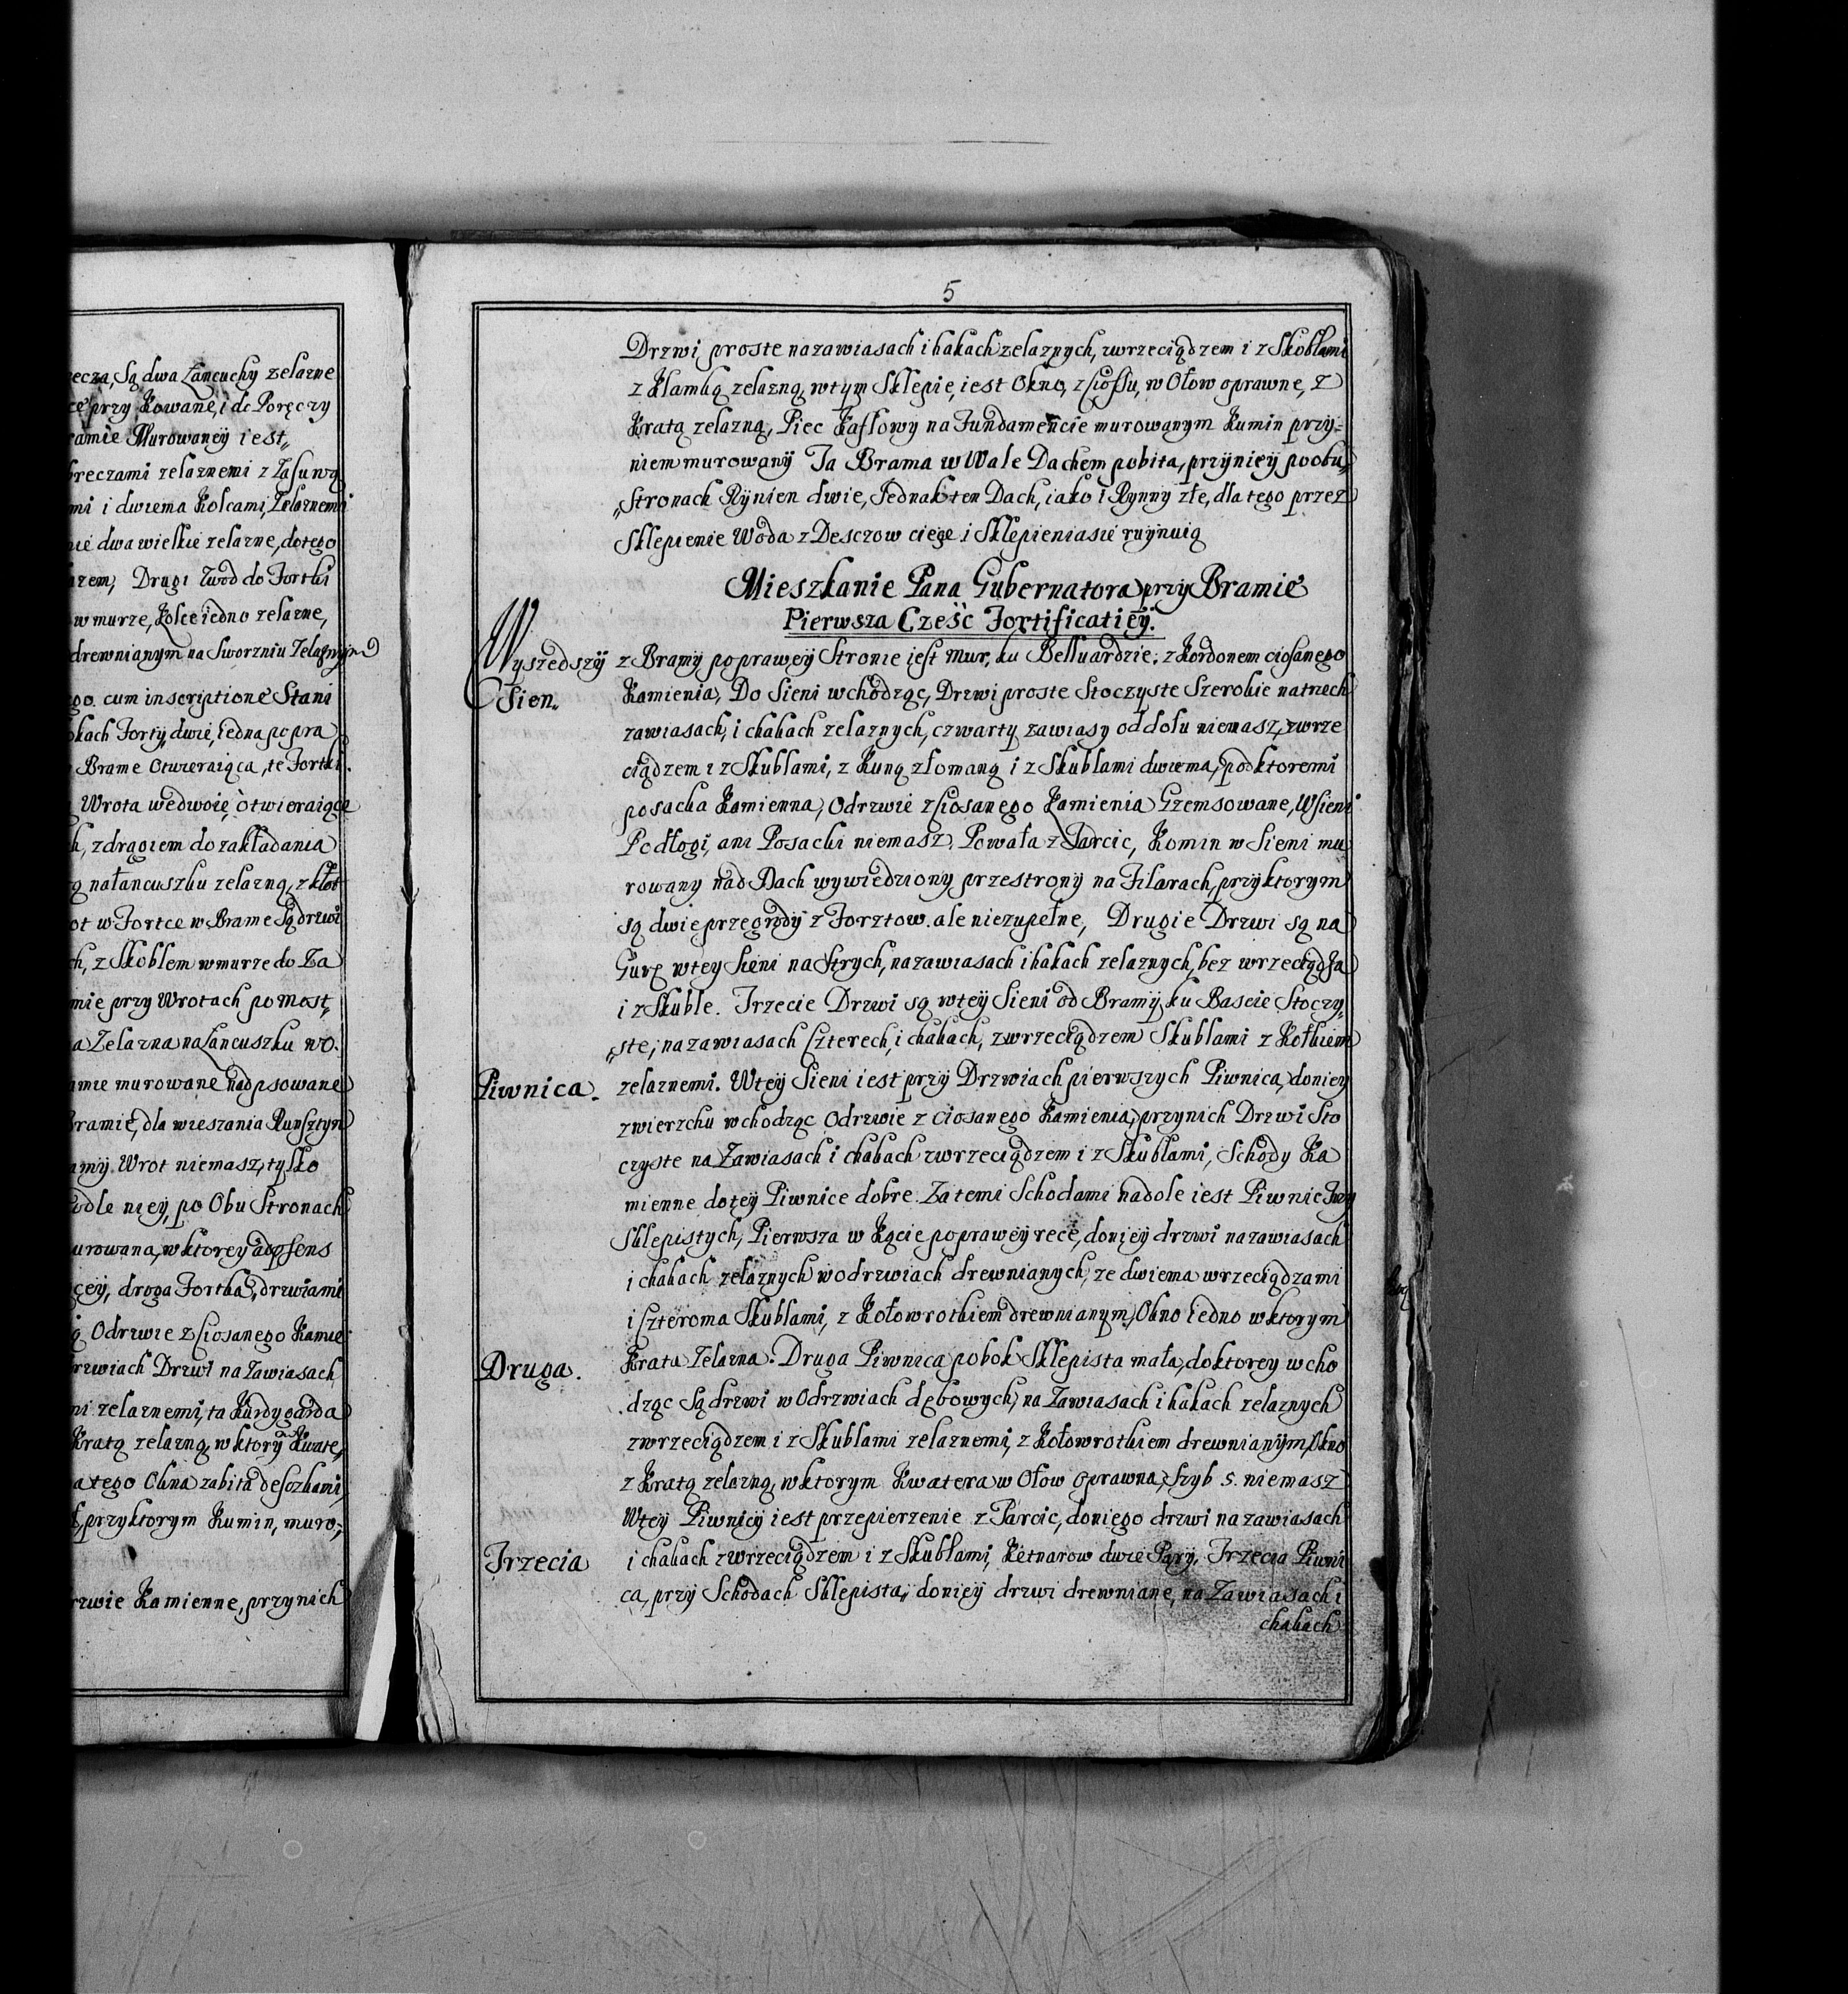 ecza, Są dwa Łancuchy zelazne
ce przy Kowane, i do Poręczy
ramie Murowaneÿ iest„
breczami zelaznemi z Zasuwą
mi i dwiema Kolcami, Zelaznemi
nie dwa wielkie zelazne, do tego
azem, Drugi Zwod do Fortki
w murze, Kolce iedno zelazne,
drewnianym na Sworzniu Zelaznÿm
go. cum inscriptione Stani
okach Forty„ dwie, iedna po pra
Brame Otwieraiąca, te Fortki.
Wrota wedwoie, otwieraiące
h, z drągiem do zakładania
ą na łancuszku zelazną, z kłot
ot w Fortce w Bramie Są drzwi
ch, z Skoblem w murze do Za
mie przy Wrotach po most„
a Zelazna na Łancuszku wo.
amie murowane nadpsowane
Bramie, dla wieszania Runsztyn
amÿ. Wrot niemasz, tylko
edle nieÿ, po Obu Stronach
urowana, w ktorey adpsens
ceÿ, droga Fortka, drzwiami
ą Odrzwie z Ciosanego Kamie
rzwiach Drzwi na Zawiasach
ni zelaznemi, ta Kurdygarda
Kratą zelazną, w ktorÿ Kwate„
a tego Okna zabita desczkami,
ł, przyktorym Kumin, muro„
rzwie Kamienne, przynich
5
Drzwi proste na zawiasach i hakach zelaznych, zwrzeciądzem i z Skoblami
z Klambą zelazną, wtym Sklepie, iest Okno, z Ciossu, w Ołow oprawne, Z
Kratą zelazną, Piec Kaflowy na Fundamencie murowanym Kumin przy=
niem murowanÿ Ta Brama w Wale Dachem pobita, przÿnieÿ poobu„
„Stronach Rÿnien dwie, Jednak ten Dach, iako i Rynny złe, dla tego przez
Sklepienie Woda z Desczow ciecze i Sklepienia sie ruÿnuią
Mieszkanie Pana Gubernatora przy Bramie
Pierwsza Część Fortificatieÿ.
Wyszedszÿ z Bramÿ popraweÿ Stronie iest Mur, ku Belluardzie, z Kordonem ciosanego
Sien„ Kamienia, Do Sieni wchodząc, Drzwi proste Stoczyste Szerokie natrzech
zawiasach, i chakach zelaznych, czwartÿ zawiasy od dołu niemasz, zwrze
ciądzem i z Skublami, z Kuną złomaną i z Skublami dwiema, podktoremi
posacka Kamienna, Odrzwie z Ciosanego Kamienia Gzemsowane, W Sieni
Podłogi, ani Posacki niemasz, Powała z Tarcic, Komin w Sieni mu
rowany nad Dach wywiedziony przestronÿ na Filarach, przyktorym
są dwie przegrody z Forztow. ale niezupełne, Drugie Drzwi są na
Gurę wtey Sieni na Strych, na zawiasach i hakach zelaznych, bez wrzeciądza
i z Skuble. Trzecie Drzwi są wteÿ Sieni od Bramÿ ku Bascie Stoczy„
„ste, na zawiasach Czterech, i chakach, zwrzeciądzem Skublami z Kołkiem
Piwnica. zelaznemi. Wteÿ Sieni iest przÿ Drzwiach pierwszych Piwnica, doniey
zwierzchu wchodząc Odrzwie z ciosanego Kamienia, przynich Drzwi Sto
czyste na Zawiasach i chakach zwrzeciądzem i z Skublami, Schody Ka
mienne doteÿ Piwnice dobre. Za temi Schodami nadole iest Piwnic Trzy
Sklepistych, Pierwsza w Kącie poprawey rece, donieÿ drzwi na zawiasach
i chakach zelaznych wodrzwiach drewnianych, ze dwiema wrzeciądzami
i Czteroma Skublami, z Kołowrotkiem drewnianym, Okno iedno wktorym
Druga. Krata Zelazna. Druga Piwnica pobok Sklepista mała, doktorey wcho
dząc Są drzwi w Odrzwiach dębowych, na Zawiasach i hakach zelaznych
zwrzeciądzem i z Skublami zelaznemi, z Kołowrotkiem drewnianÿm, Okno
z Kratą zelazną, wktorym Kwatera w Ołow oprawna, Szyb 5. niemasz
Wteÿ Piwnicÿ iest przepierzenie z Tarcic, doniego drzwi na zawiasach
Trzecia i chakach zwrzeciądzem i z Skubłami, Ketnarow dwie Parÿ. Trzecia Piwni
ca, przÿ Schodach Sklepista, donieÿ drzwi drewniane, na Zawiasach i
chakach